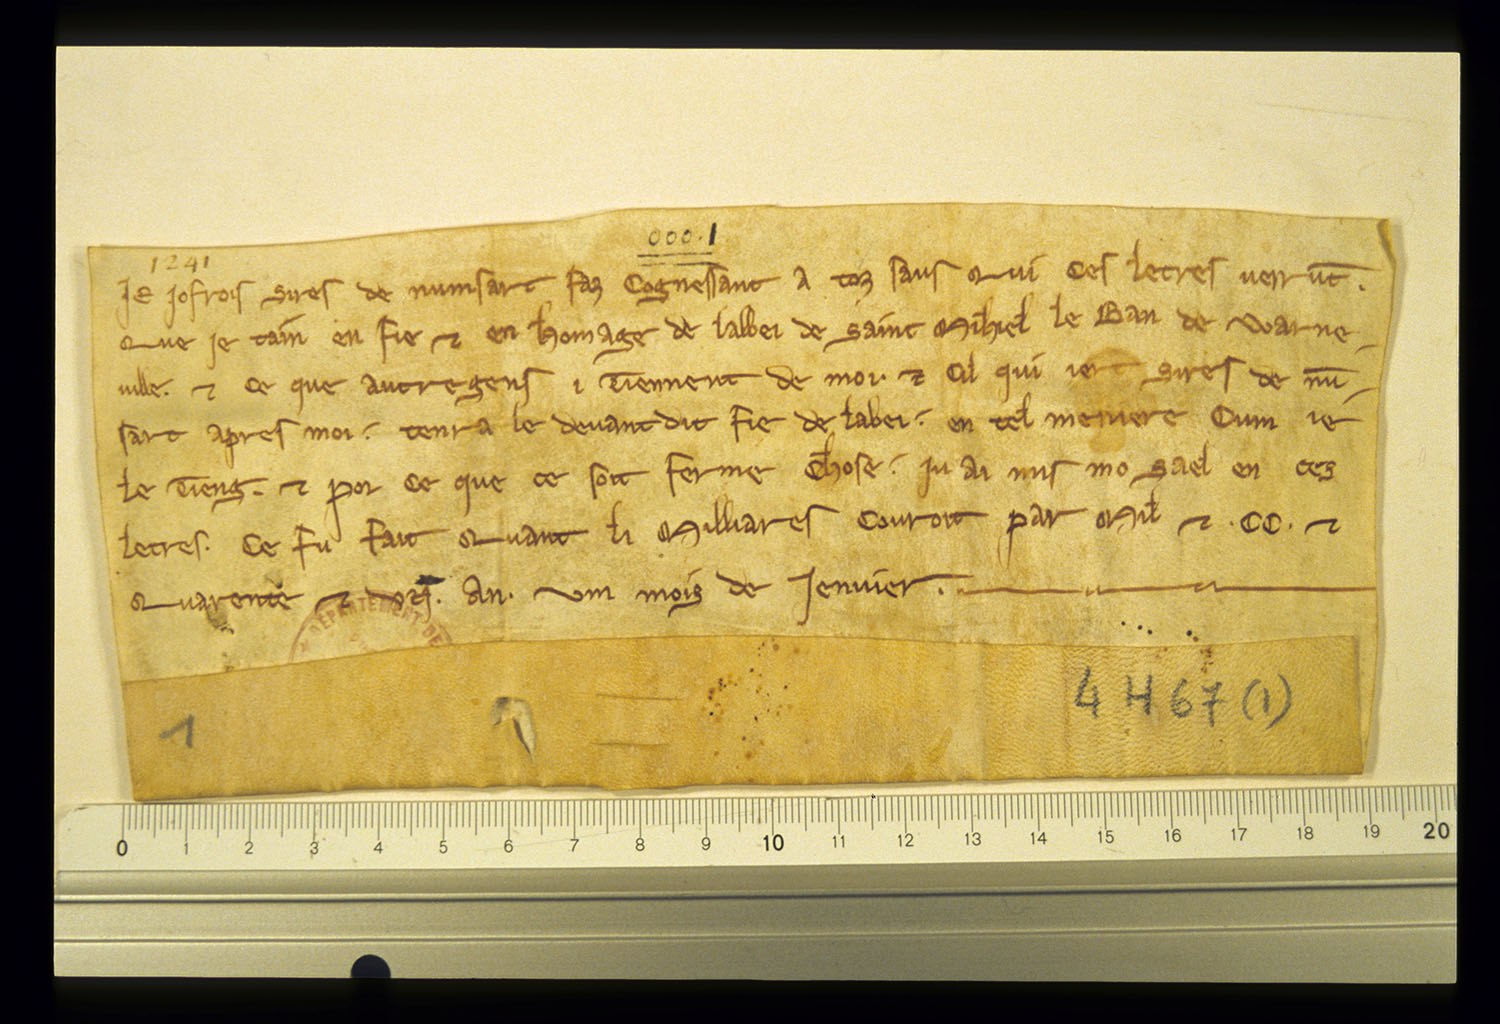 000.1
1241
Je Jofrois sires de numsart faz Cognessant a toz saus Qui Ces letres verrūt.
Que je tain en fie ⁊ en homage de labbei de saint Mihiel le Ban de Warne-
uille. ⁊ Ce que autregens i Tiennent de moi. ⁊ Cil qui iert sires de nū-
sart apres moi. tenra le deuant dit fie de labei. en tel meniere Cum ie
le Tieng. ⁊ por Ce que ce soit ferme Chose. Ju ai mis mo sael en ces
letres. Ce fu fait Quant li Milliares Couroit par Mil ⁊ .CC. ⁊
Quarente ⁊ An. um mois de Jenvier.
DEPARTEMENT DE
1
4 H 67 (1)
0 1 2 3 4 5 6 7 8 9 10 11 12 13 14 15 16 17 18 19 20